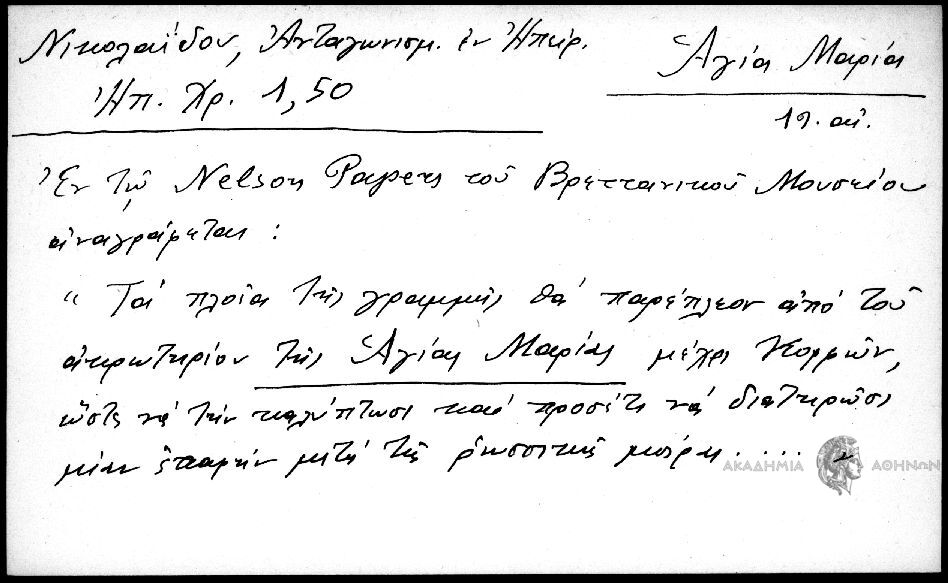 Νικολαΐδου, Ἀνταγωνισμ. ἐν Ἠπείρ.
Ἠπ. Χρ. 1,50
Ἁγία Μαρία
19. αἰ.
Ἐν τῷ Nelson Papers τοῦ Βρεττανικοῦ Μουσείου
ἀναγράφεται :
" Τά πλοῖα τῆς γραμμῆς θά παρέπλεον ἀπό τοῦ
ἀκρωτηρίου τῆς Ἁγίας Μαρίας μέχρι Κορφῶν,
ὥστε νά τήν καλύπτωσι καί προσέτι νά διατηρῶσι
μίαν ἐπαφήν μετά τῆς ρωσσικῆς μοίρας . . . . "
ΑΚΑΔΗΜΙΑ ΑΘΗΝΩΝ